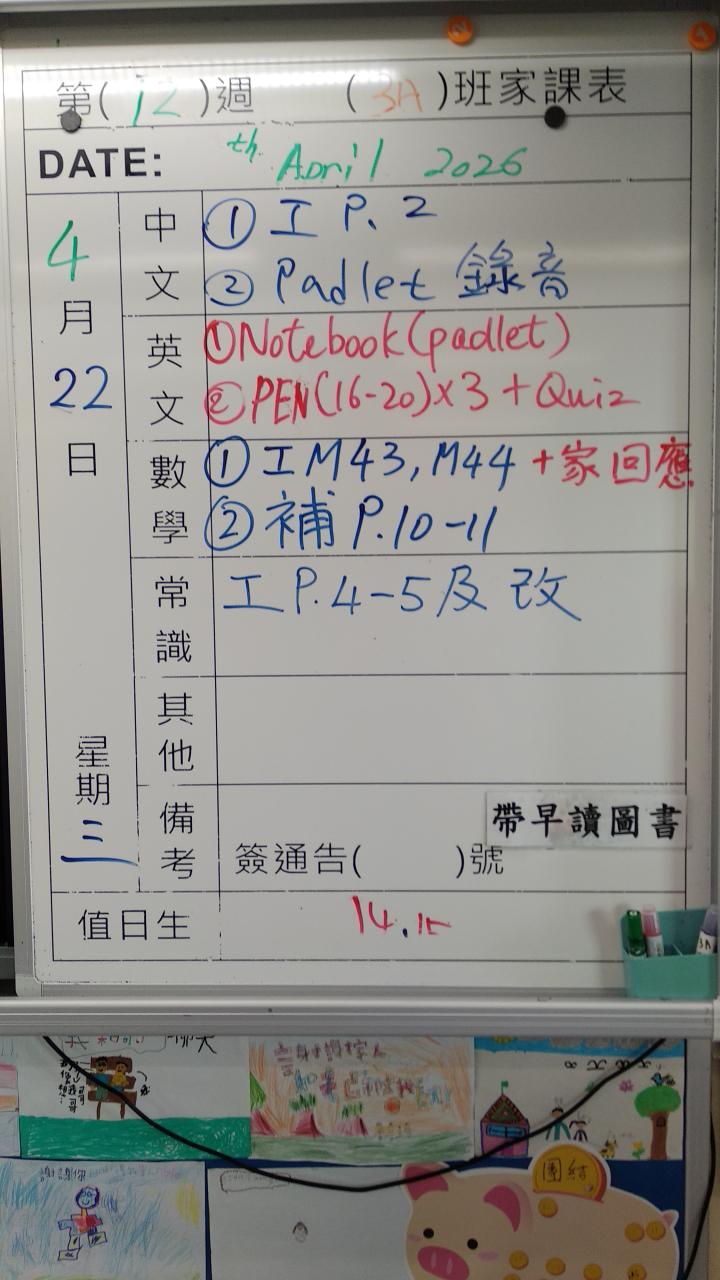 第(12)週 (3A)班家課表
DATE: th April 2026
4月22日 星期三
中文 ①工 P. 2
②Padlet 錄音
英文 ①Notebook(padlet)
②PEN(16-20)×3 + Quiz
數學 ①工M43, M44 +家回應
②補P.10-11
常識 工P.4-5及改
其他
備考 帶早讀圖書
簽通告( )號
值日生 14.15
3A
謝謝你
團結